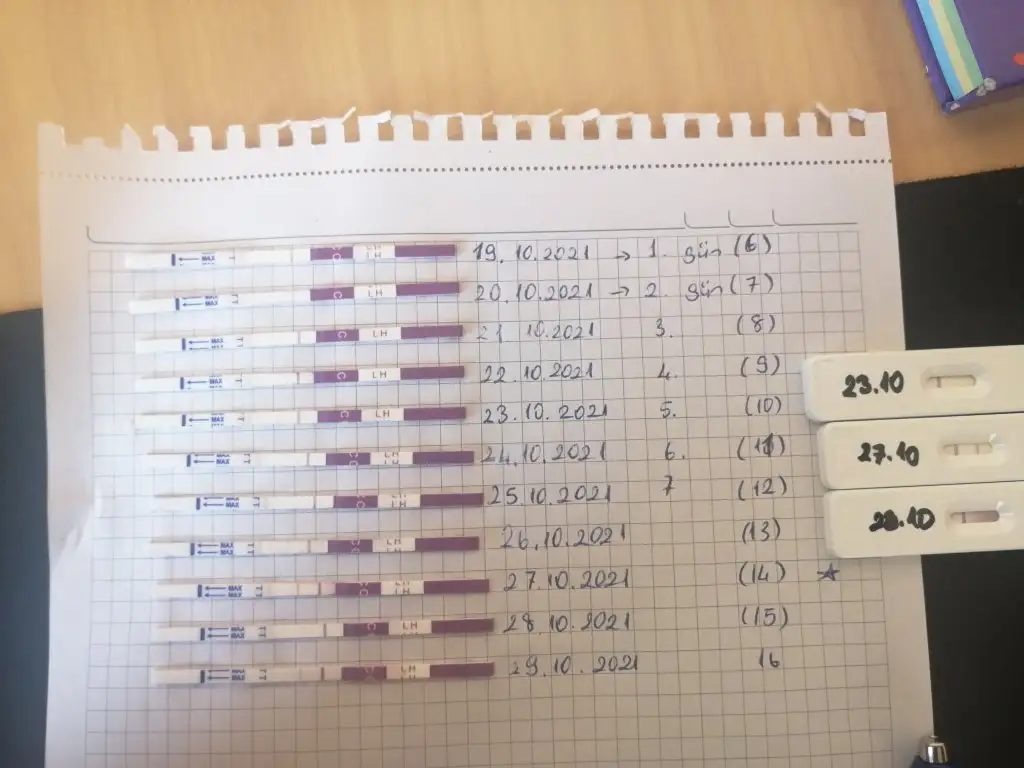 MAX MAX T C LH 19.10.2021 → 1. gün (6)
MAX MAX TT C LH 20.10.2021 → 2. gün (7)
MAX T C LH 21.10.2021 3. (8)
MAX T C LH 22.10.2021 4. (9)
MAX T C LH 23.10.2021 5. (10)
MAX MAX TT CC LH 24.10.2021 6. (11)
MAX MAX TT CC LH 25.10.2021 7 (12)
MAX MAX TT CC LH 26.10.2021 (13)
MAX MAX TT CC LH 27.10.2021 (14) ★
MAX MAX TT CC LH 28.10.2021 (15)
MAX MAX TT CC LH 29.10.2021 16
23.10
27.10
28.10